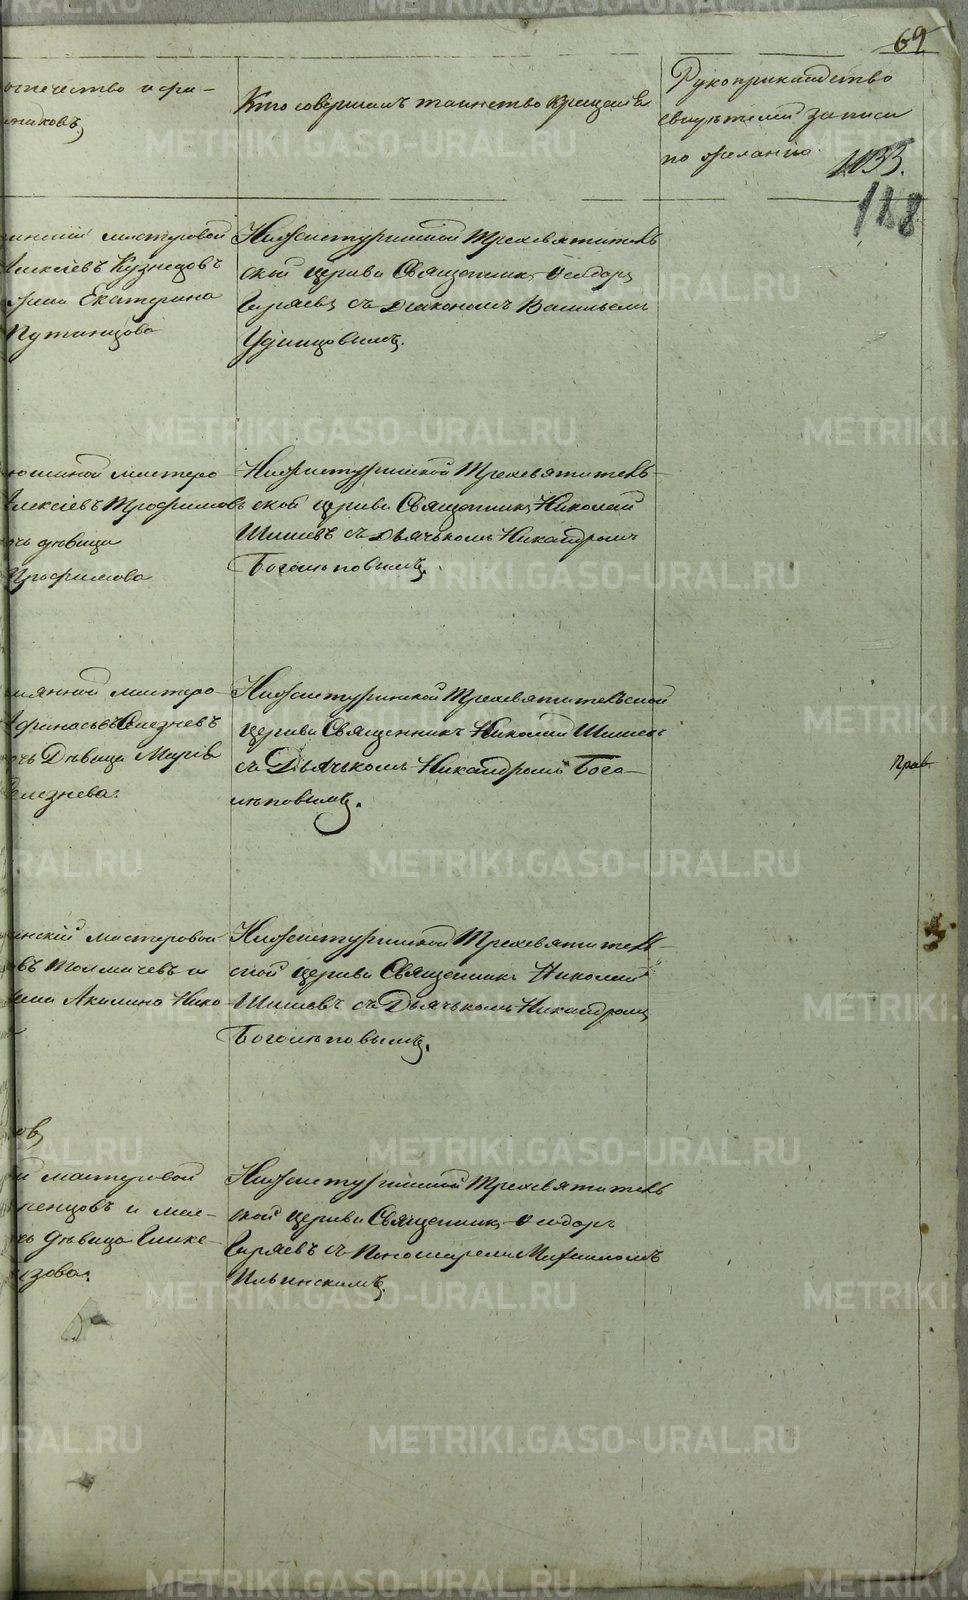 69
отчество и фа-
никовъ
Кто совершалъ таинство крещенія
Рукоприкладство
свидѣтелей записи
по желанію.
1133.
118
инскій мастеровой
Алексѣевъ Кузнецовъ
Екатерина
Путинцова
Нижнетуринской Трехсвятитель
ской церкви Священникъ Феодоръ
Ширяевъ съ діакономъ Васильемъ
Удинцовымъ.
мастеро
Алексѣевъ Трофимовъ
очь дѣвица
Трофимова
Нижнетуринской Трехсвятитель-
ской церкви Священникъ Николай
Шишевъ съ Дьячькомъ Никандромъ
Боголѣповымъ.
мастеро
Афанасьевъ Селезневъ
очь Дѣвица Марія
Селезнева.
Нижнетуринской Трехсвятительской
церкви Священникъ Николай Шишевъ
съ Дьячькомъ Никандромъ Бого-
лѣповымъ.
Прав
инскій мастеровой
въ Толмачевъ и
Акилина Нико
Нижнетуринской Трехсвятитель-
ской церкви Священникъ Николай
Шишевъ съ Дьячькомъ Никандромъ
Боголѣповымъ.
овъ
й мастеровой
ренцовъ и мас-
чь дѣвица
изова.
Нижнетуринской Трехсвятитель
ской церкви Священникъ Феодоръ
Ширяевъ съ Пономаремъ Михаиломъ
Ильинскимъ.
METRIKI.GASO-URAL.RU